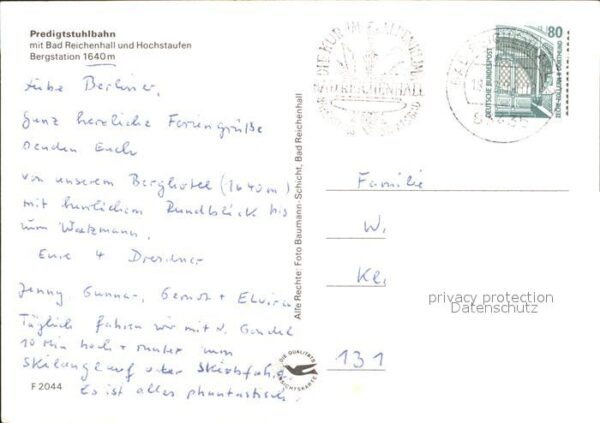 Predigtstuhlbahn
mit Bad Reichenhall und Hochstaufen
Bergstation 1640 m
Liebe Berliner,
Ganz herzliche Feriengrüße
senden Euch
von unserem Berghotel (1640 m)
mit herrlichem Rundblick bis
zum Watzmann.
Eure 4 Dresdner
Jenny, Gunnar, Gernot + Elvira
Täglich fahren wir mit d. Gondel
10 Min hoch + runter zum
Skilanglauf oder Skiabfahrt.
Es ist alles phantastisch.
F 2044
Alle Rechte: Foto Baumann-Schicht, Bad Reichenhall
DIE QUALITÄTS
ANSICHTSKARTE
BAD REICHENHALL
80
DEUTSCHE BUNDESPOST
ZECHE ZOLLERN II DORTMUND
Familie
W.
Ke.
131
privacy protection
Datenschutz